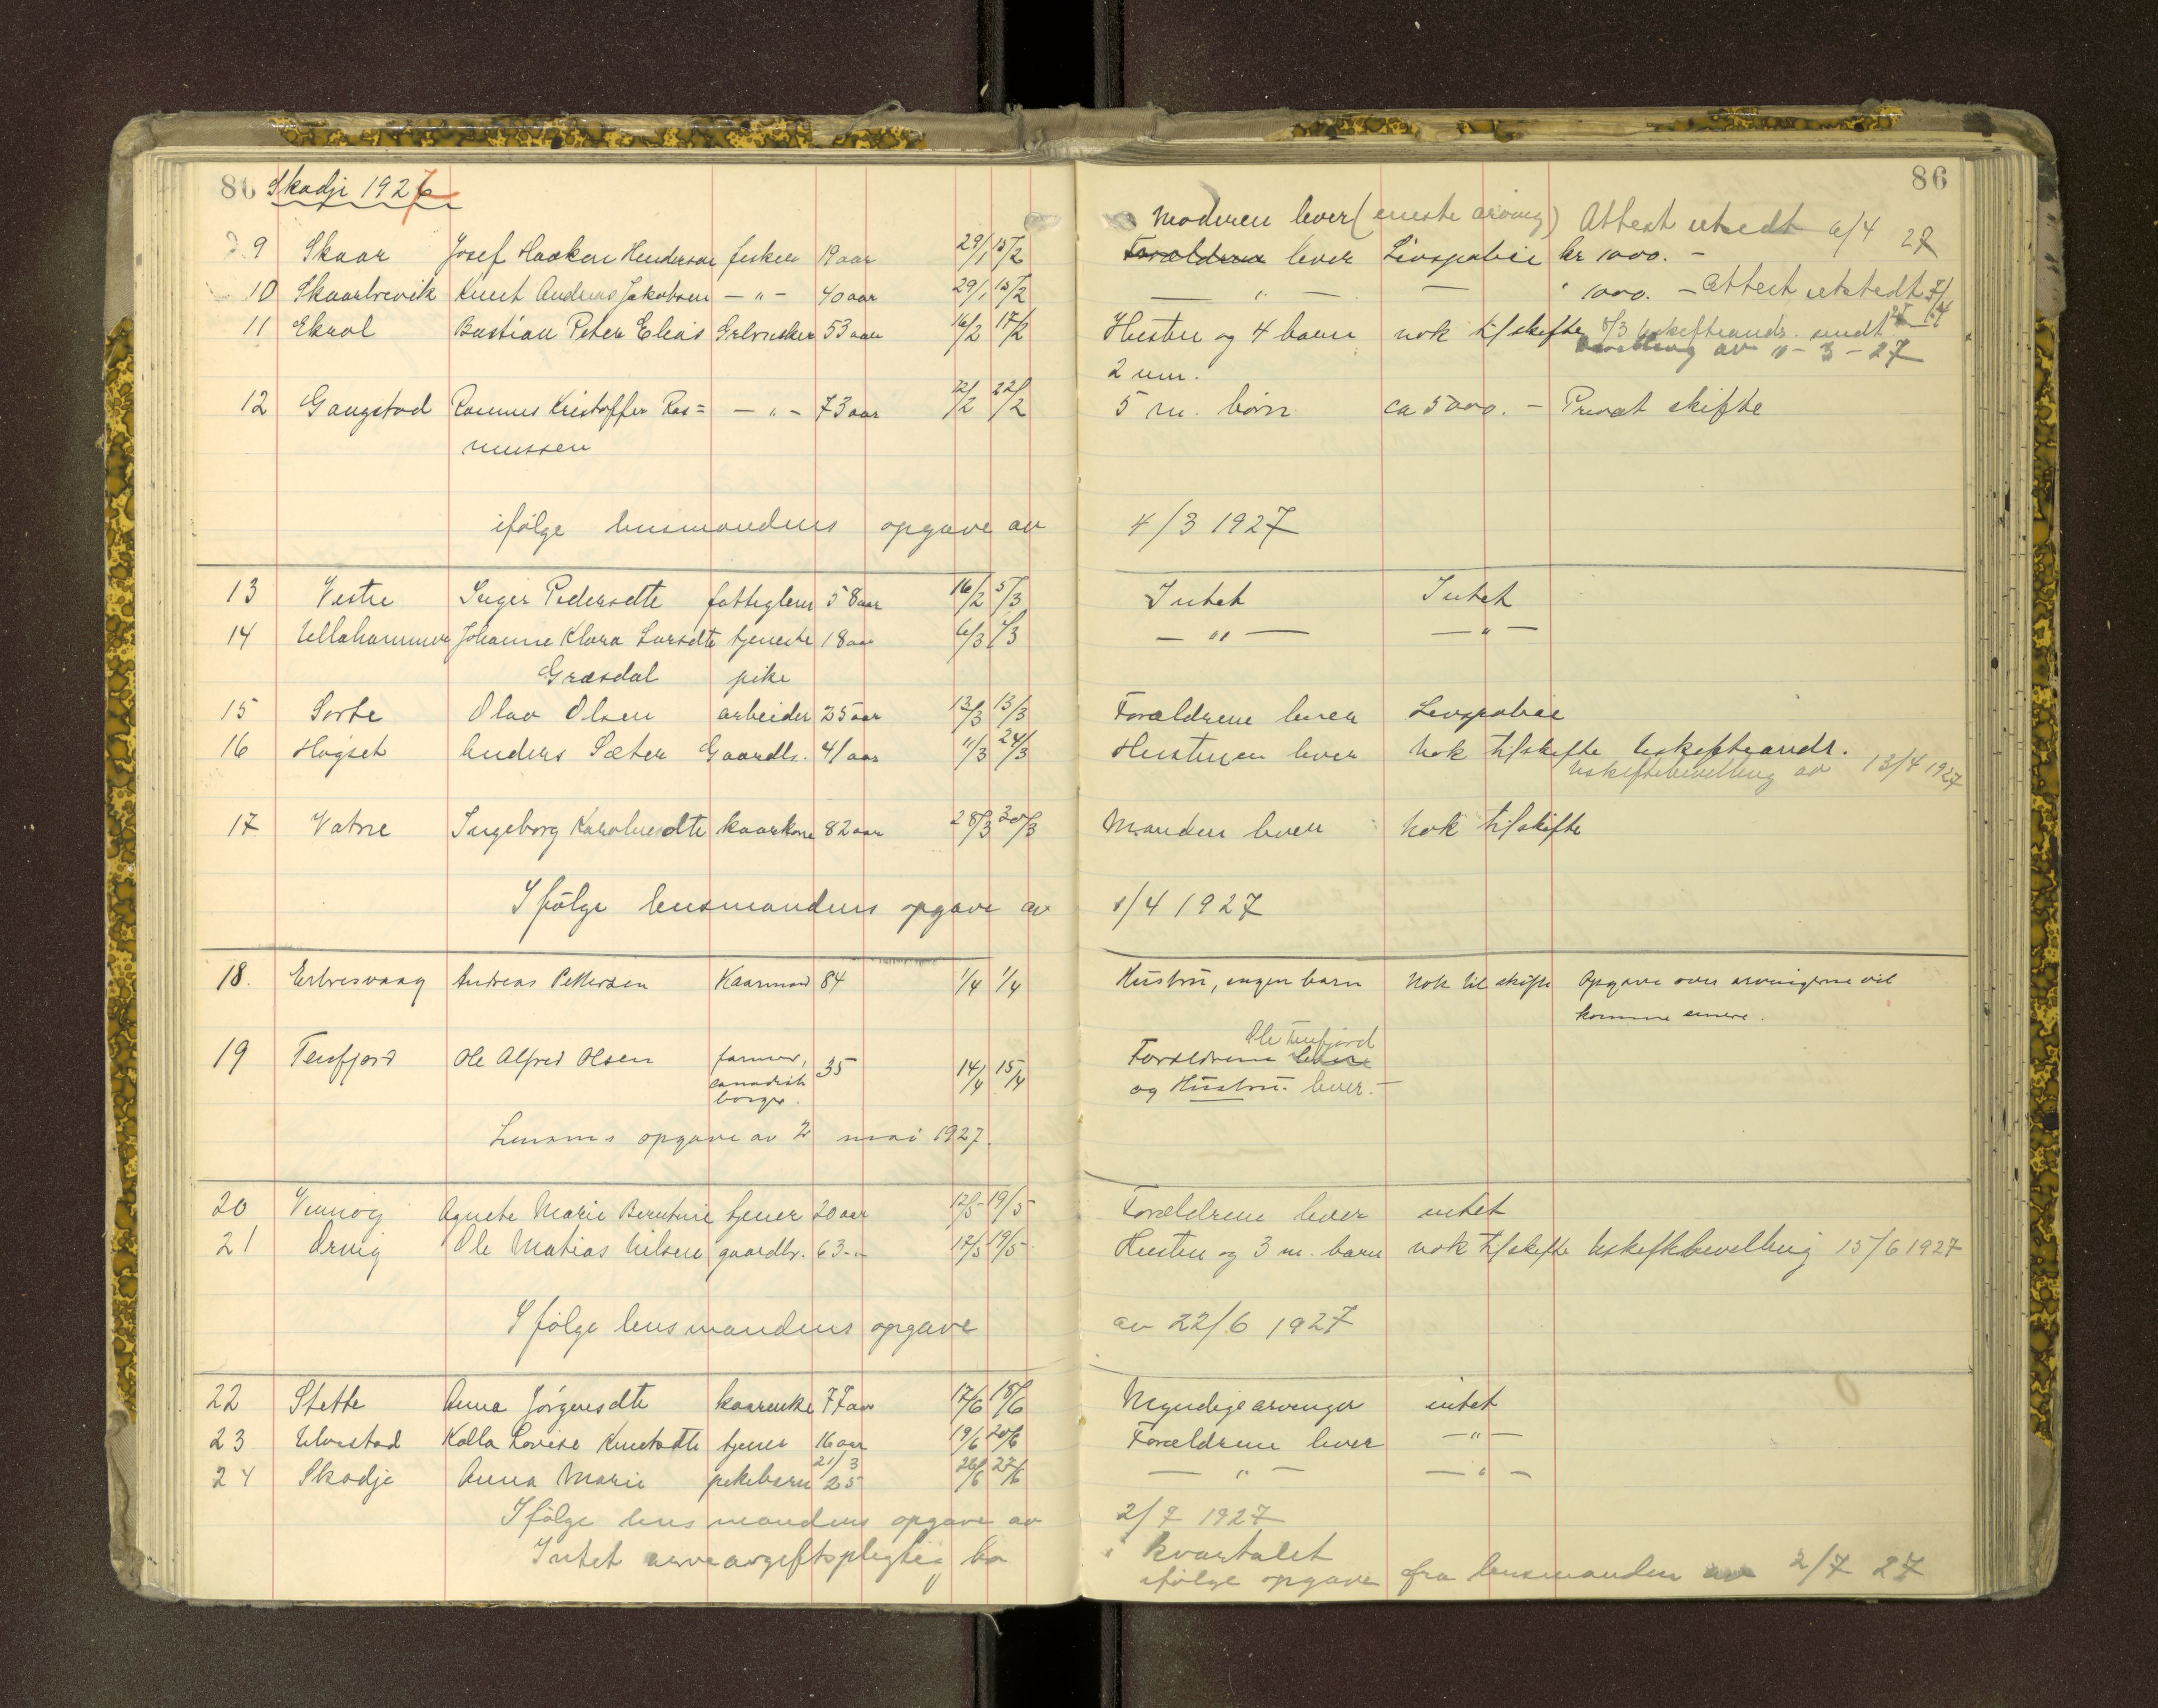 86 Skodje 1927 86
Moderen lever (eneste arving) Attest utstedt 6/4 27
9 Skaar Josef Haakon Hendersøn fisker 19 aar 29/1 15/2 Forældrene lever Livspolice kr 1000. -
10 Skaarbrevik Knut Andreas Jakobsen - " - 40 aar 29/1 15/2 - " - - " 1000. - Attest utstedt
11 Ekrol Bastian Peter Eleas Grbruker 53 aar 16/2 17/2 Hustru og 4 barn nok til skifte 8/3 uskifteandr. sendt
2 um. bevilling av 11-3-27
12 Gangstad Rasmus Kristoffer Ras= - " - 73 aar 12/2 22/2 5 m. børn ca 5000. - Privat skifte
mussen
ifølge lensmandens opgave av 4/3 1927
13 Vestre Inger Pedersdtr fattiglem 58 aar 16/2 5/3 Intet Intet
14 Ullahammer Johanne Klara Larsdtr tjeneste 18 aar 6/3 7/3 - " - - " -
Græsdal pike
15 Sorte Olav Olsen arbeider 25 aar 13/3 13/3 Forældrene lever Livspolice
16 Høgset Anders Sæter Gaardbr. 41 aar 11/3 24/3 Hustruen lever Nok til skifte Uskifteandr.
Uskiftebevilling av 13/4 1927
17 Vatne Ingeborg Karolusdtr kaarkone 82 aar 28/3 30/3 Manden lever Nok til skifte
Ifølge lensmandens opgave av 1/4 1927
18. Erlvesvaag Andreas Pettersen Kaarmand 84 1/4 1/4 Hustru, ingen barn Nok til skifte Opgave over arvingerne vil
komme senere.
Ole Tenfjord
19 Tenfjord Ole Alfred Olsen farmer, 35 14/4 15/4 Forældrene lever
canadisk og Hustru. lever. -
borger.
Lensm.s opgave av 2 mai 1927.
20 Vemøy Agnete Marie Berntine tjener 20 aar 12/5 19/5 Forældrene lever intet
21 Ørvig Ole Matias Nilsen gaardbr. 63 - " - 12/5 19/5 Hustru og 3 m. barn nok til skifte Uskiftebevilling 15/6 1927
Ifølge lensmandens opgave av 22/6 1927
22 Stette Anna Jørgensdtr kaarenke 77 aar 17/6 18/6 Myndige arvinger intet
23 Ulvestad Kalla Lovise Knutsdtr tjener 16 aar 19/6 20/6 Forældrene lever - " -
24 Skodje Anna Marie pikebarn 21/3 25 26/6 27/6 - " - - " -
Ifølge lensmandens opgave av 2/7 1927
Intet arveavgiftspligtig bo i kvartalet
ifølge opgave fra lensmanden av 2/7 27